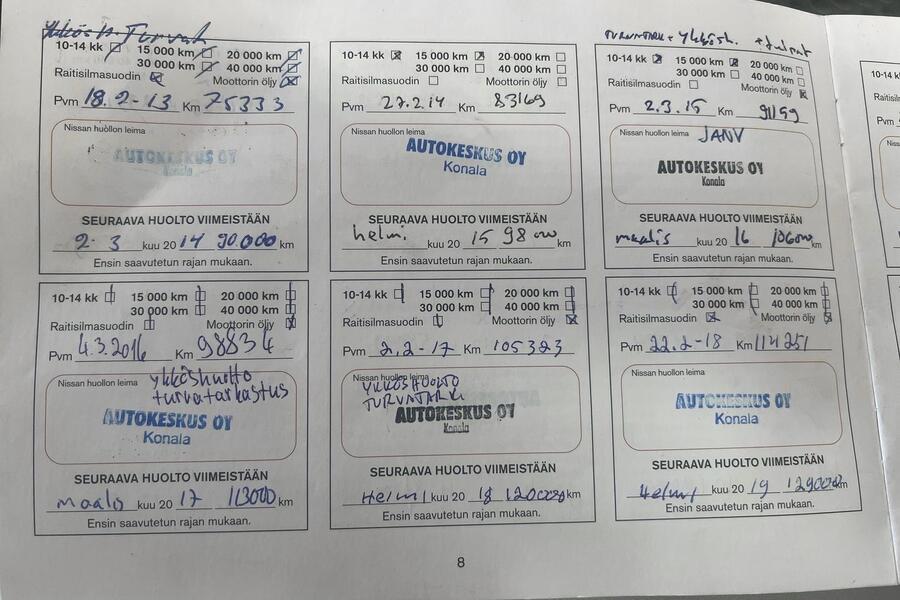 Ykkös h. Turvat
10-14 kk 15 000 km 20 000 km
30 000 km 40 000 km
Raitisilmasuodin Moottorin öljy
Pvm 18.2-13 Km 75333
Nissan huollon leima
AUTOKESKUS OY
Konala
SEURAAVA HUOLTO VIIMEISTÄÄN
2.3 kuu 20 14 90.000 km
Ensin saavutetun rajan mukaan.
10-14 kk 15 000 km 20 000 km
30 000 km 40 000 km
Raitisilmasuodin Moottorin öljy
Pvm 27.2.14 Km 83169
Nissan huollon leima
AUTOKESKUS OY
Konala
SEURAAVA HUOLTO VIIMEISTÄÄN
helmi kuu 20 15 98000 km
Ensin saavutetun rajan mukaan.
TURVATARK + Ykkösh.
10-14 kk 15 000 km 20 000 km
30 000 km 40 000 km
Raitisilmasuodin Moottorin öljy
Pvm 2.3.15 Km 91159
Nissan huollon leima JANV
AUTOKESKUS OY
Konala
SEURAAVA HUOLTO VIIMEISTÄÄN
maalis kuu 20 16 106000 km
Ensin saavutetun rajan mukaan.
10-14 kk 15 000 km 20 000 km
30 000 km 40 000 km
Raitisilmasuodin Moottorin öljy
Pvm 4.3.2016 Km 98834
Nissan huollon leima ykköshuolto
turvatarkastus
AUTOKESKUS OY
Konala
SEURAAVA HUOLTO VIIMEISTÄÄN
maalis kuu 20 17 113000 km
Ensin saavutetun rajan mukaan.
10-14 kk 15 000 km 20 000 km
30 000 km 40 000 km
Raitisilmasuodin Moottorin öljy
Pvm 2.2-17 Km 105323
Nissan huollon leima
YKKÖSHUOLTO
TURVATARK
AUTOKESKUS OY
Konala
SEURAAVA HUOLTO VIIMEISTÄÄN
HELMI kuu 20 18 120000 km
Ensin saavutetun rajan mukaan.
10-14 kk 15 000 km 20 000 km
30 000 km 40 000 km
Raitisilmasuodin Moottorin öljy
Pvm 22.2-18 Km 114251
Nissan huollon leima
AUTOKESKUS OY
Konala
SEURAAVA HUOLTO VIIMEISTÄÄN
Helmi kuu 20 19 129000 km
Ensin saavutetun rajan mukaan.
8